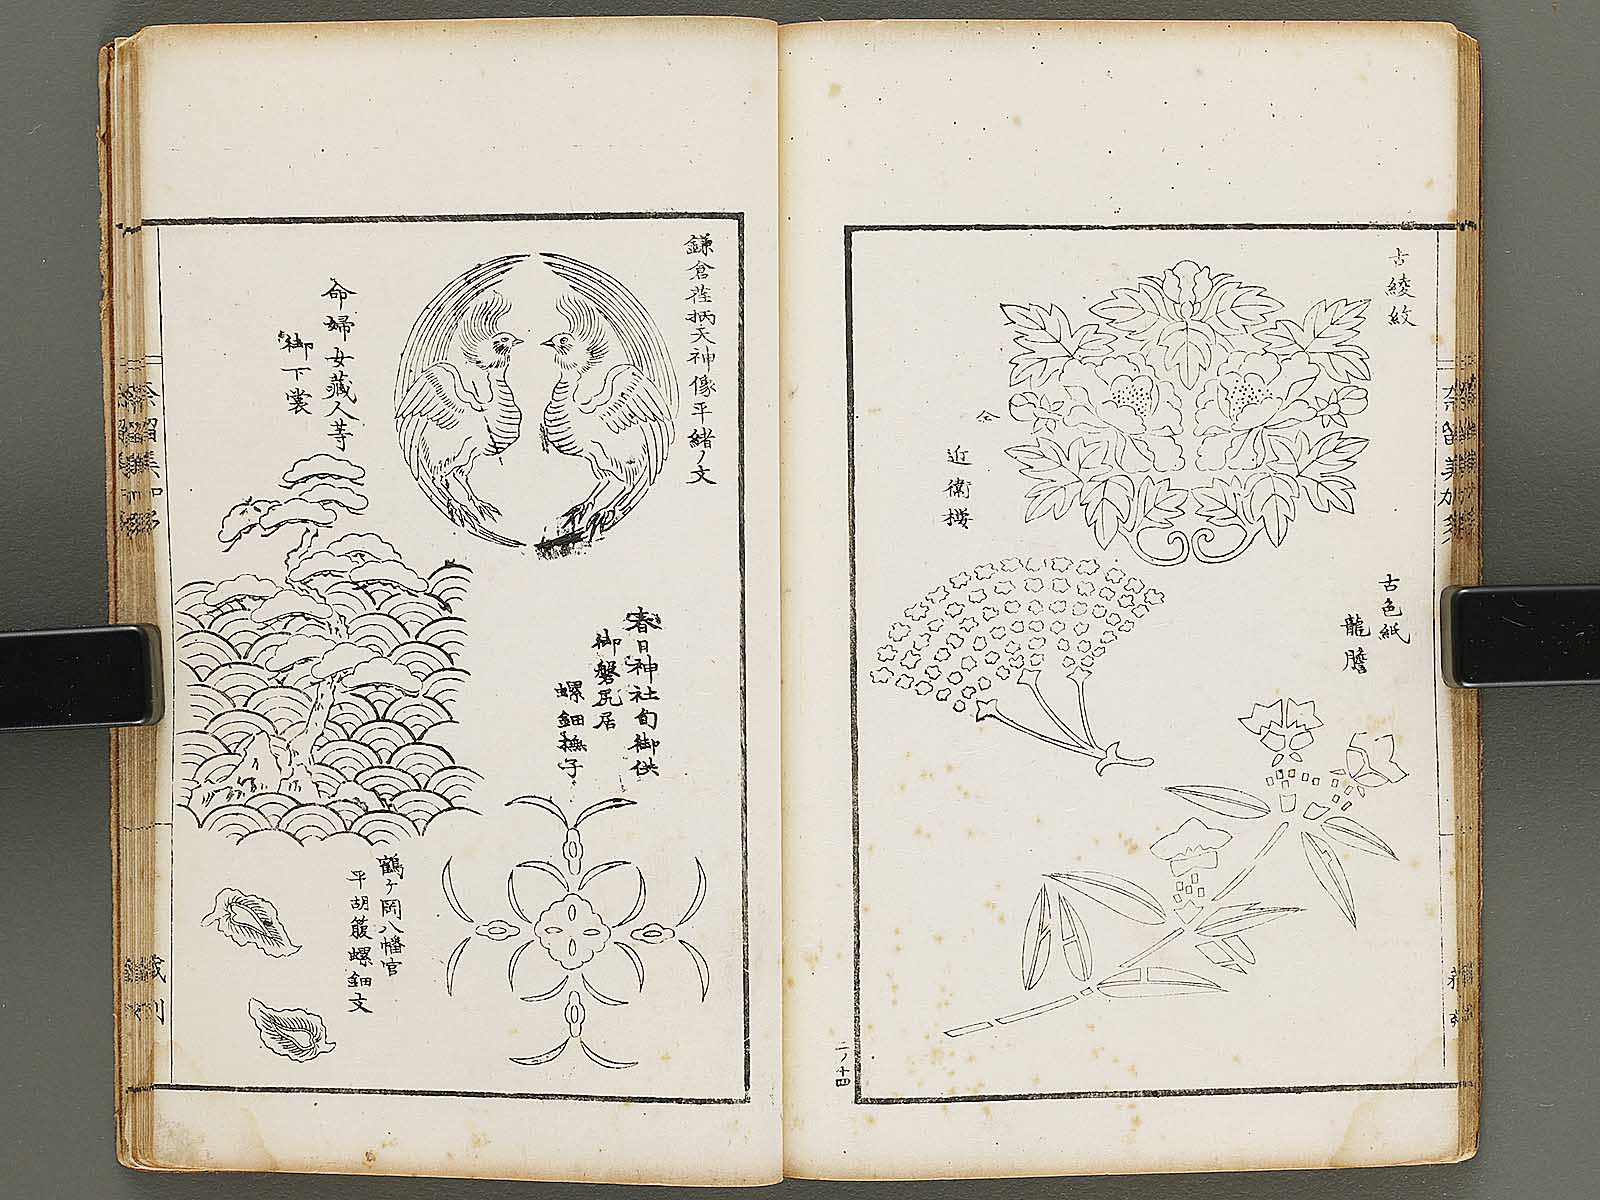 古綾紋
仝
近衛桜
古色紙
龍膽
二ノ十四
鎌倉荏柄天神像平緒ノ文
命婦女蔵人等
御下裳
春日神社旬御供
御磐尻居
螺鈿撫子
鶴ヶ岡八幡宮
平胡籙螺鈿文